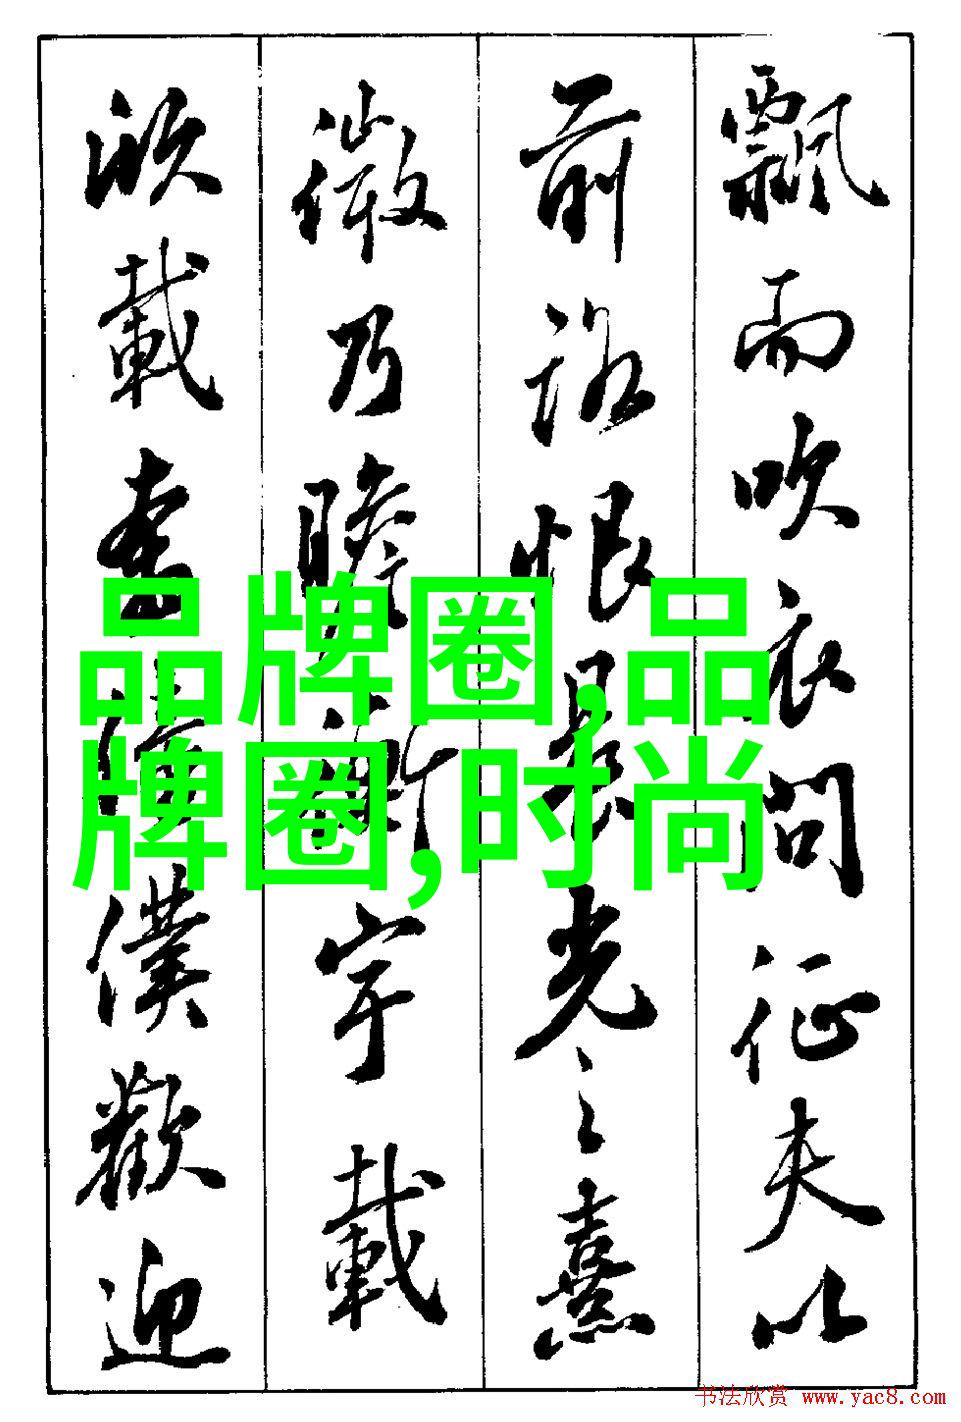 飄而吹衣問征夫以
前路恨晨光之熹
微乃瞻衡宇載
欣載奔僮僕歡迎
品牌圈,品
牌圈,时尚
书法欣赏 www.yac8.com